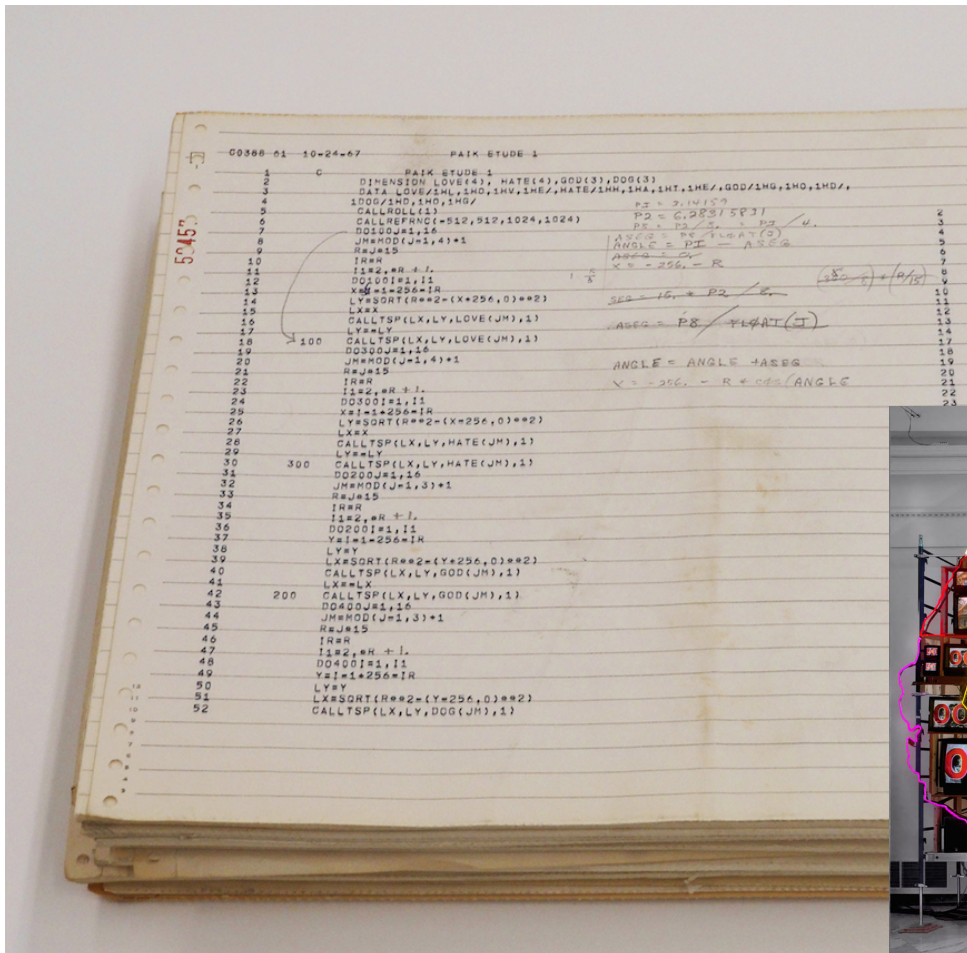 C0388 61 10-24-67 PAIK ETUDE 1
1 C PAIK ETUDE 1
2 DIMENSION LOVE(4), HATE(4),GOD(3),DOG(3)
3 DATA LOVE/1HL,1HO,1HV,1HE/,HATE/1HH,1HA,1HT,1HE/,GOD/1HG,1HO,1HD/,
4 1DOG/1HD,1HO,1HG/
5 CALLROLL(1)
6 CALLREFRNC(-512,512,1024,1024)
7 DO100J=1,16
8 JM=MOD(J-1,4)+1
9 R=J*15
10 IR=R
11 I1=2,*R + 1.
12 DO100I=1,I1
13 X=I-1-256-IR
14 LY=SQRT(R**2-(X+256,0)**2)
15 LX=X
16 CALLTSP(LX,LY,LOVE(JM),1)
17 LY=-LY
18 100 CALLTSP(LX,LY,LOVE(JM),1)
19 DO300J=1,16
20 JM=MOD(J-1,4)+1
21 R=J*15
22 IR=R
23 I1=2,*R + 1.
24 DO300I=1,I1
25 X=I-1+256-IR
26 LY=SQRT(R**2-(X-256,0)**2)
27 LX=X
28 CALLTSP(LX,LY,HATE(JM),1)
29 LY=-LY
30 300 CALLTSP(LX,LY,HATE(JM),1)
31 DO200J=1,16
32 JM=MOD(J-1,3)+1
33 R=J*15
34 IR=R
35 I1=2,*R + 1.
36 DO200I=1,I1
37 Y=I-1-256-IR
38 LY=Y
39 LX=SQRT(R**2-(Y+256,0)**2)
40 CALLTSP(LX,LY,GOD(JM),1)
41 LX=-LX
42 200 CALLTSP(LX,LY,GOD(JM),1)
43 DO400J=1,16
44 JM=MOD(J-1,3)+1
45 R=J*15
46 IR=R
47 I1=2,*R + 1.
48 DO400I=1,I1
49 Y=I-1+256-IR
50 LY=Y
51 LX=SQRT(R**2-(Y-256,0)**2)
52 CALLTSP(LX,LY,DOG(JM),1)
PI = 3.14159
P2 = 6.28315831
ASEG = P8 / FLOAT(J)
ANGLE = PI - ASEG
X = -256. - R
SEG = 15. * P2 / 2.
ASEG = P8 / FLOAT(J)
ANGLE = ANGLE + ASEG
X = -256. - R * COS(ANGLE
2
3
4
5
6
7
8
9
10
11
12
13
14
17
18
19
20
21
22
23